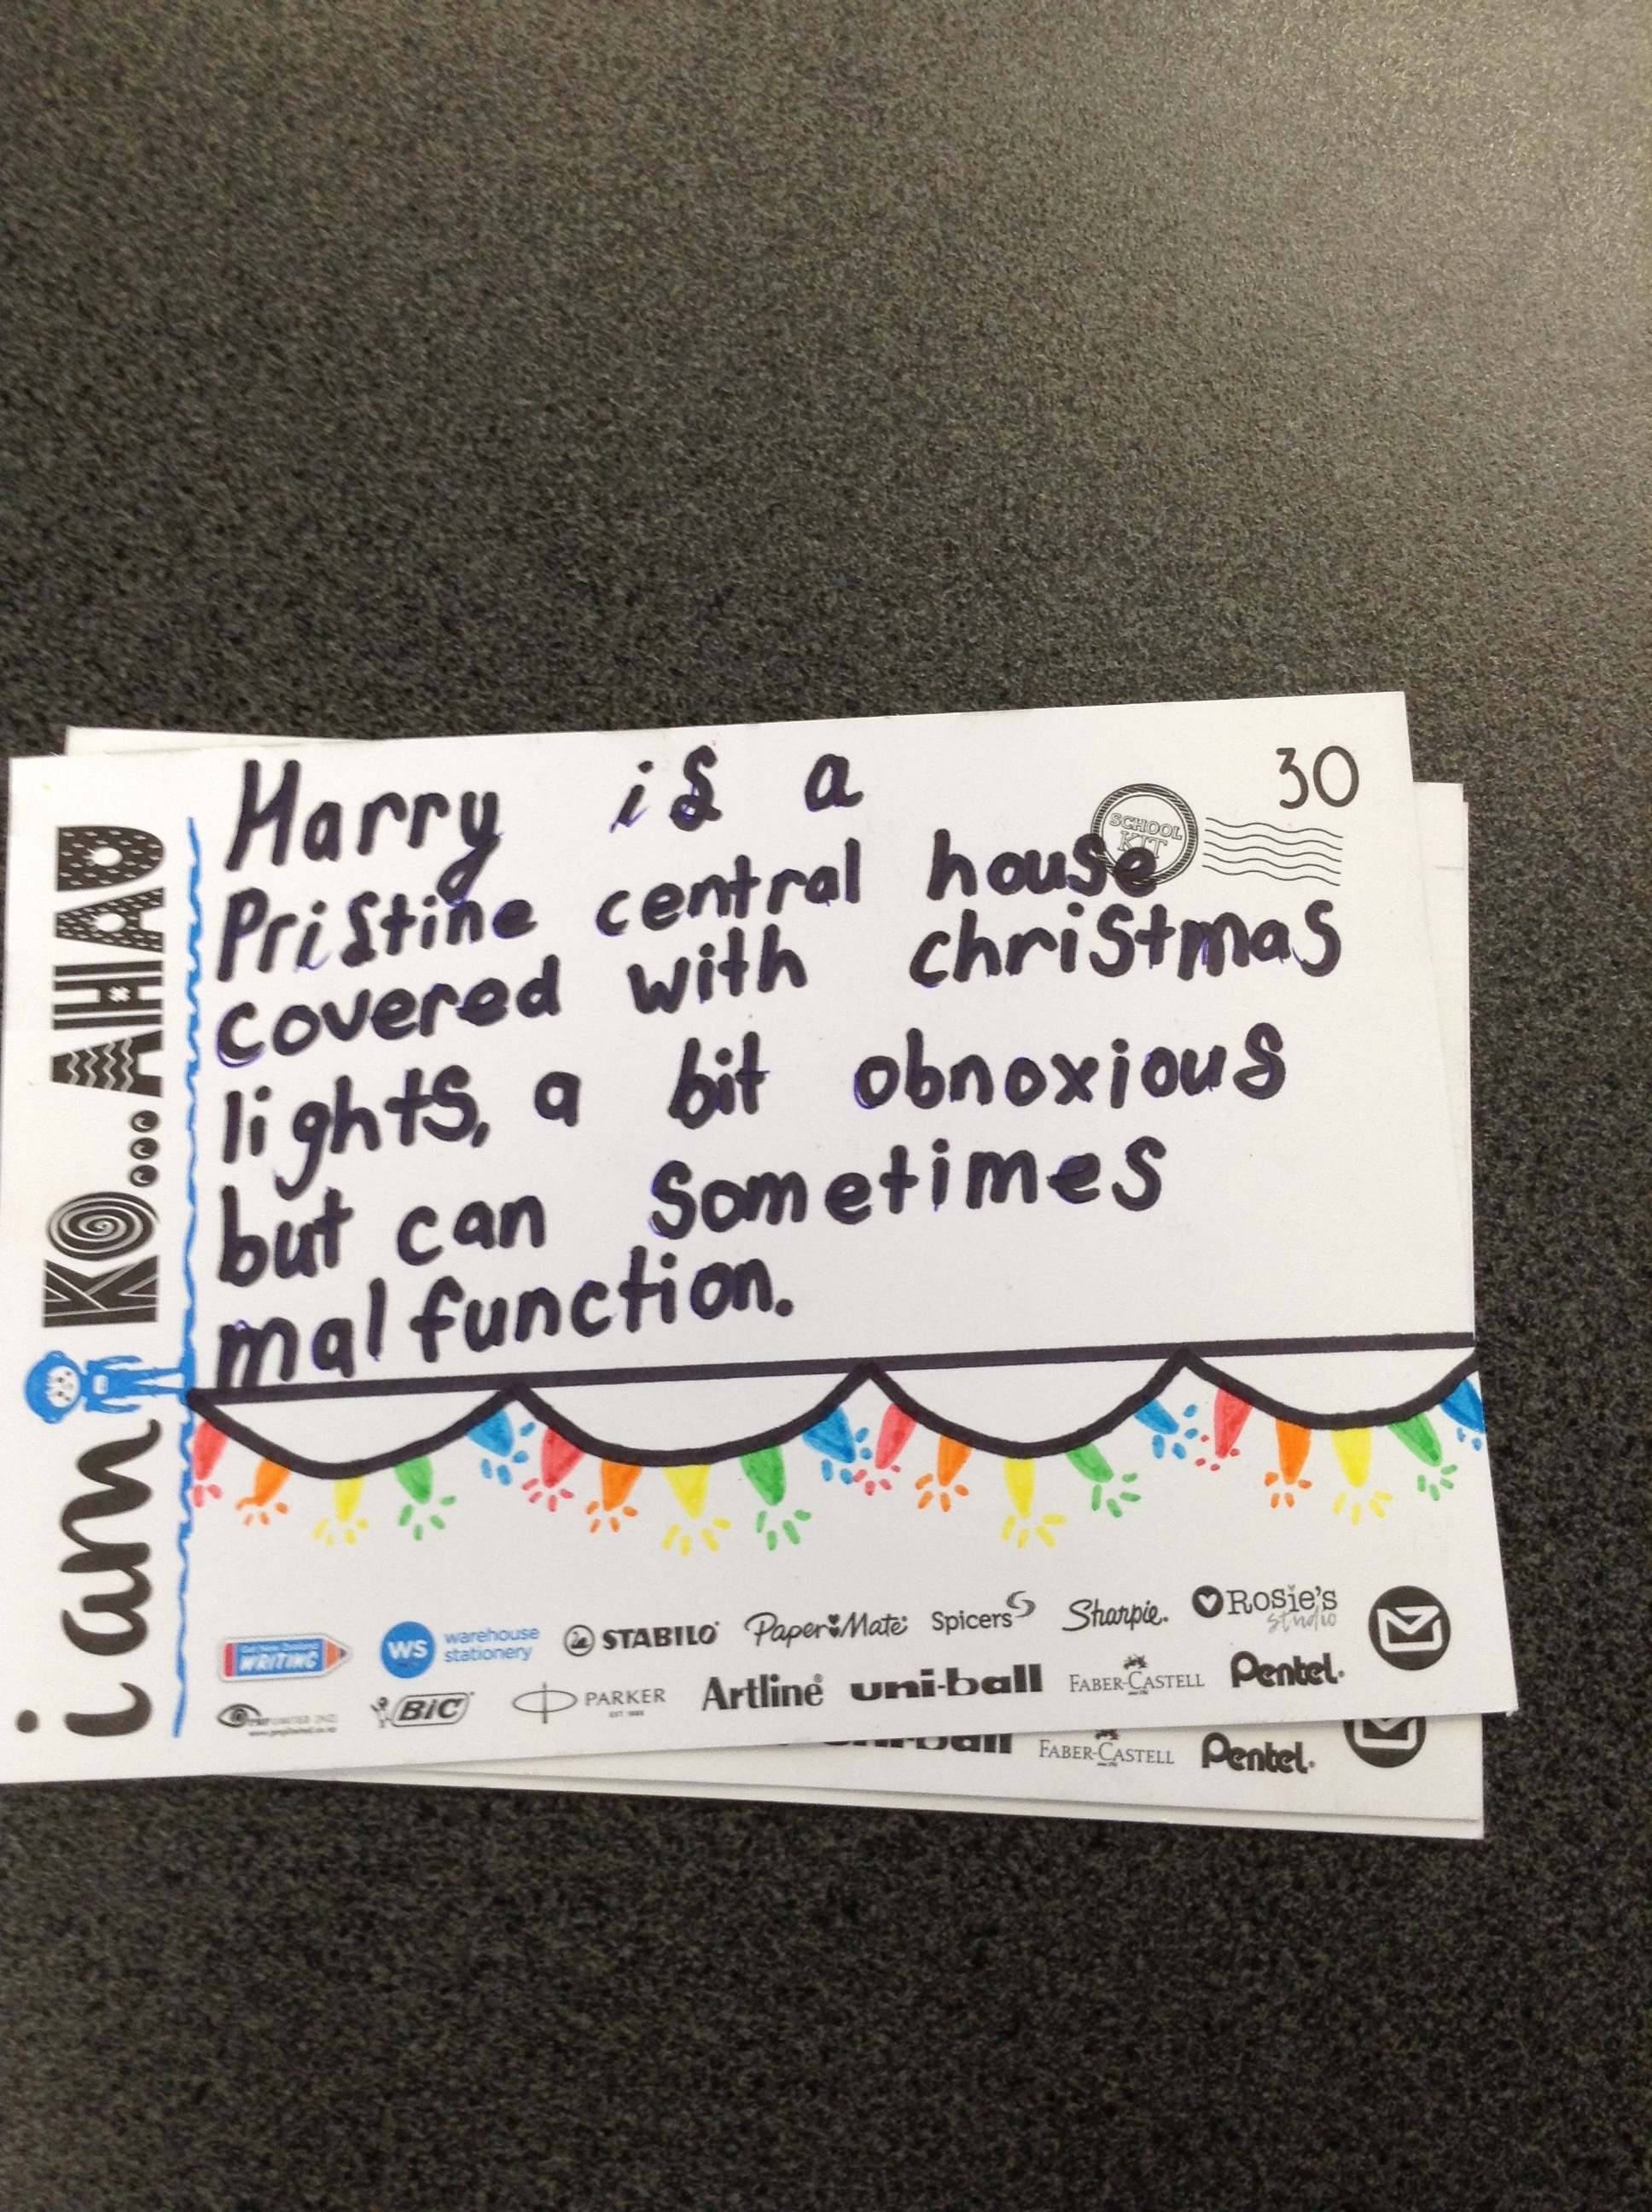 Harry is a
Pristine central house
covered with christmas
lights, a bit obnoxious
but can sometimes
malfunction.
30
SCHOOL
KIT
i am KO...AHAU
Get New Zealand
WRITING
WS warehouse
stationery
STABILO
Paper Mate
Spicers
Sharpie.
Rosie's
studio
BIC
PARKER
Artline
uni-ball
FABER-CASTELL
Pentel
uni-ball
FABER-CASTELL
Pentel